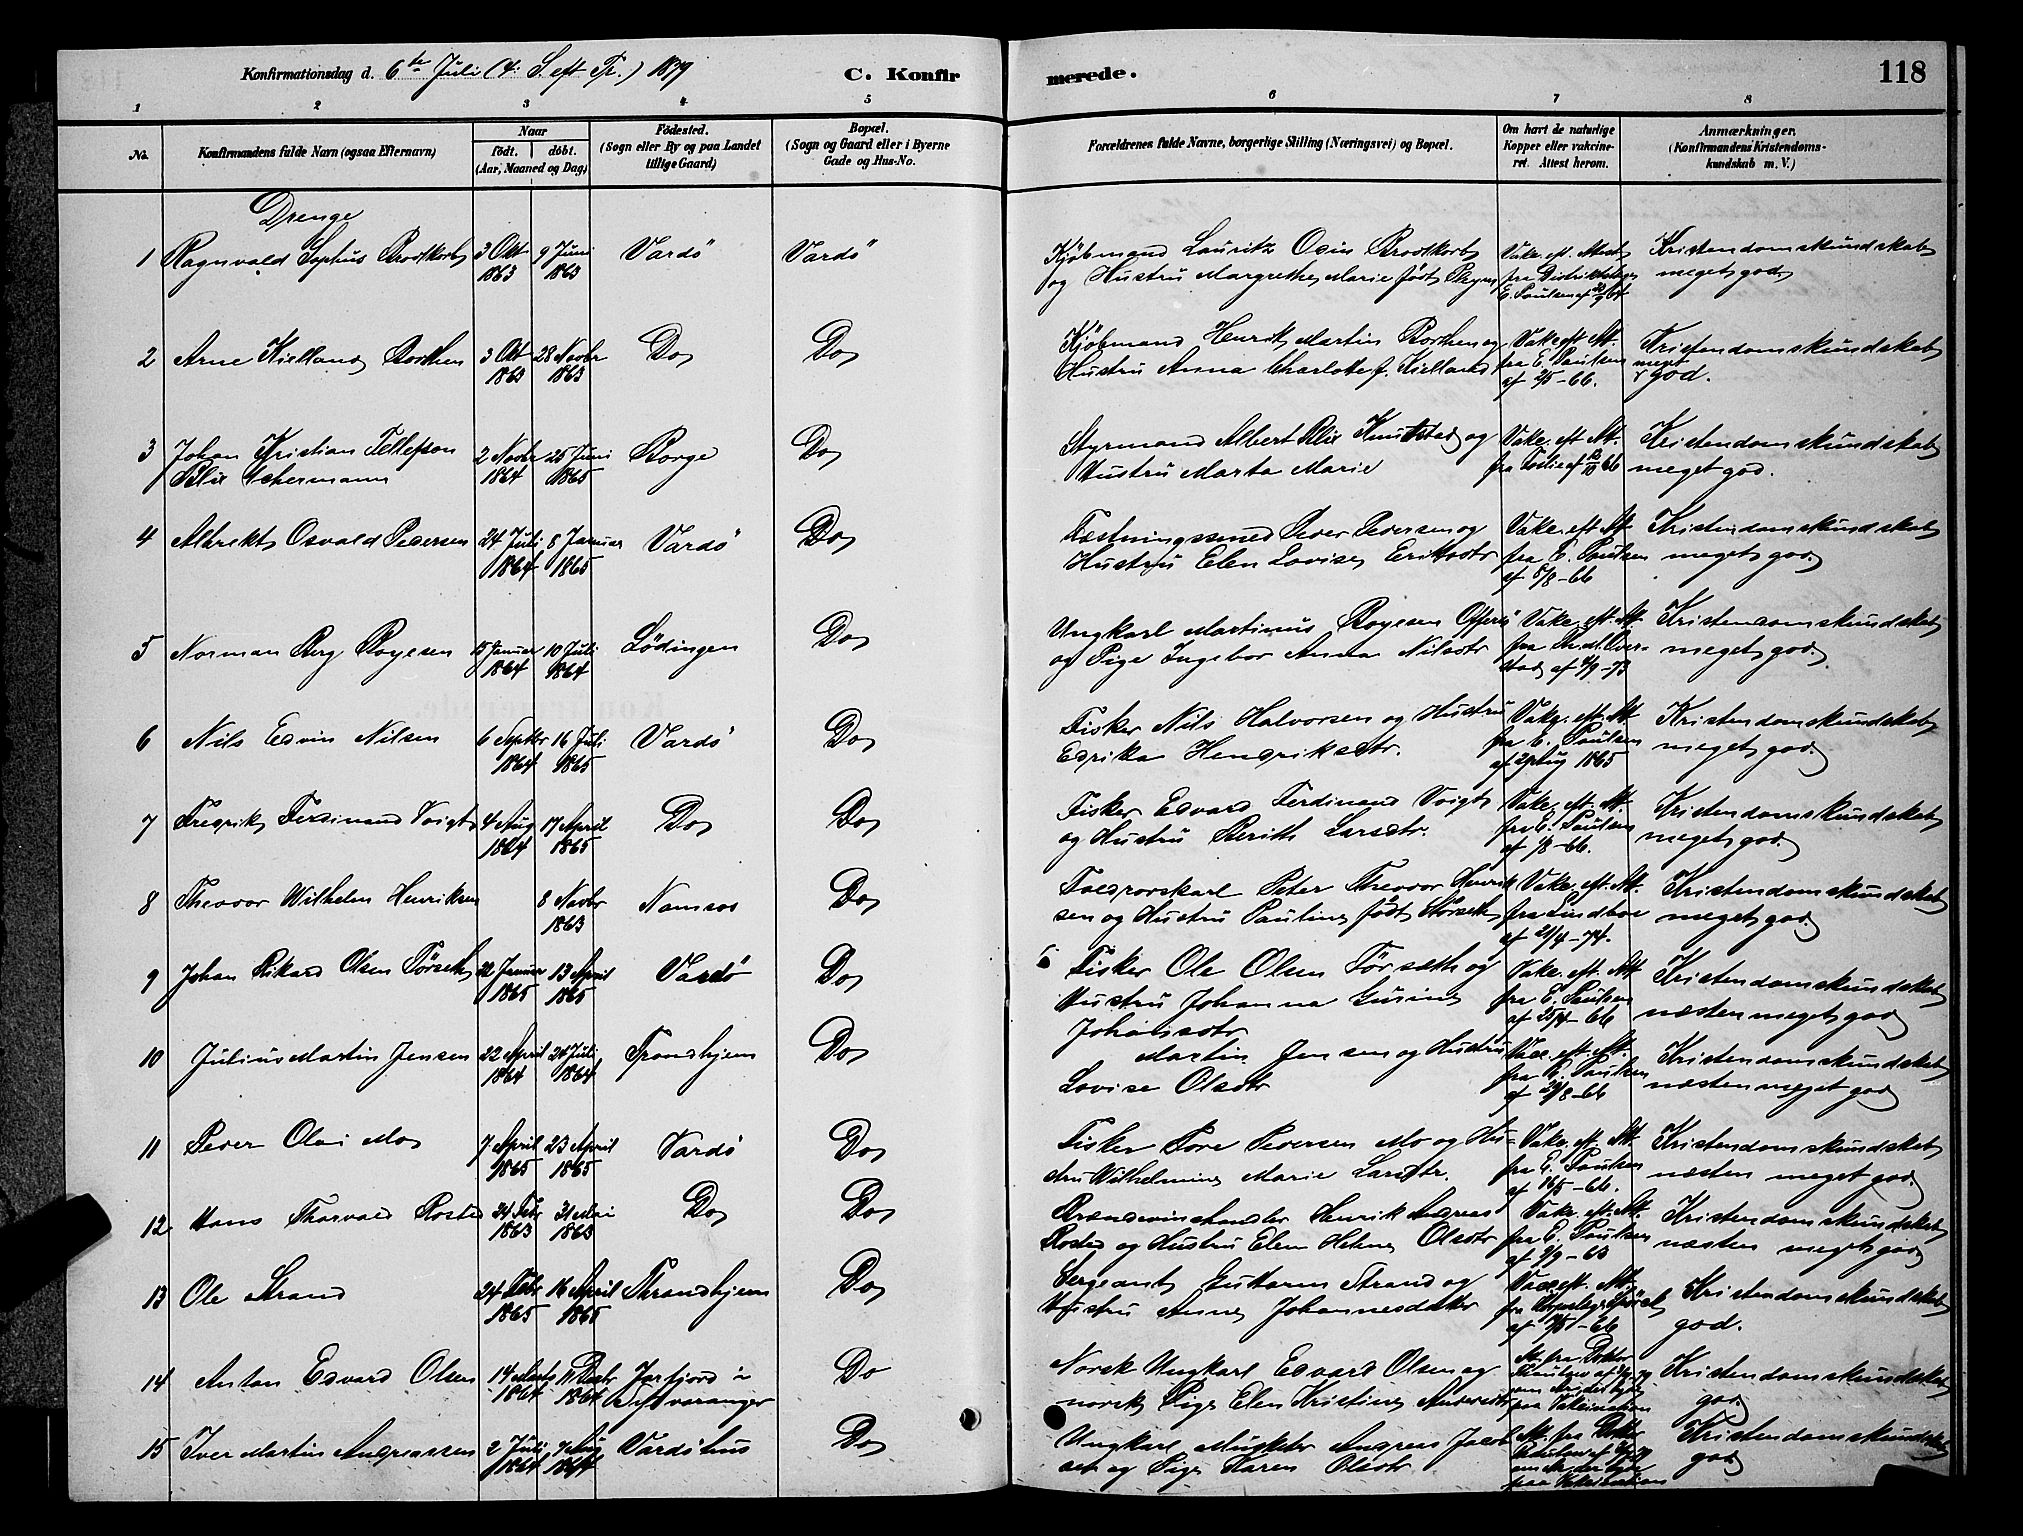 Konfirmationsdag d. 6te Juli (4. S. eft Tr.) 1879
C. Konfir
merede.
118
1 2 3 4 5 6 7 8
No.
Konfirmandens fulde Navn (ogsaa Efternavn)
Naar
født. døbt.
(Aar, Maaned og Dag)
Fødested.
(Sogn eller By og paa Landet
tillige Gaard)
Bopæl.
(Sogn og Gaard eller i Byerne
Gade og Hus-No.
Forældrenes fulde Navne, borgerlige Stilling (Næringsvei) og Bopæl.
Om havt de naturlige
Kopper eller vakcine-
ret. Attest herom.
Anmærkninger.
(Konfirmandens Kristendoms-
kundskab m. V.)
Drenge
1 Ragnvald Sophus Brodtkorb 3 Okt 9 Juni Vardö Vardö
1863 1863
Kjöbmand Lauritz Brodtkorb Vakc. eft. Attest Kristendomskundskab
og Hustru Margrethe Marie födt fra meget god
E. Paulsen af
2 Arne Kielland Borthen 3 Okt 28 Novbr Do Do
1863 1863
Kjöbmand Henrik Martin Borthen og Vakc. eft. Att. Kristendomskundskab
Hustru Anna Charlotte f. Kielland fra E. Paulsen meget
af 2/5-66. god.
3 Johan Kristian Tellefson 2 Novbr 25 Juni Borge Do
Blix 1864 1865
Styrmand Albert Blix Knutstad og Vakc. eft. Att. Kristendomskundskab
Hustru Marta Marie fra meget god.
4 Albrekt Osvald Pedersen 24 Juli 8 Januar Vardö Do
1864 1865
Fæstningssmed Peder Pedersen og Vakc. eft. Att. Kristendomskundskab
Hustru Elen Lovise Eriksdtr fra E. Paulsen meget god.
af 5/8-66
5 Norman Berg Boyesen 15 Januar 10 Juli Lödingen Do
1864 1864
Ungkarl Martinus Boyesen Vakc. eft. Att. Kristendomskundskab
og Pige Ingebor Anna Nilsdtr meget god.
6 Nils Edvin Nilsen 6 Septbr 16 Juli Vardö Do
1864 1865
Fisker Nils Halvorsen og Hustru Vakc. eft. Att. Kristendomskundskab
Edrika Hendriksdtr. fra E. Paulsen meget god.
af 29 Aug 1865
7 Fredrik Ferdinand Voigt 4 Aug 17 April Do Do
1864 1865
Fisker Edvard Ferdinand Voigt Vakc. eft. Att. Kristendomskundskab
og Hustru Berith Larsdtr. fra E. Paulsen meget god.
af 1/8-66.
8 Theodor Wilhelm Henriksen 8 Novbr Namsos Do
1863
Peter Theodor Henrik Vakc. eft. Att. Kristendomskundskab
sen og Hustru Pauline födt fra Lindboe meget god.
af 21/4-74.
9 Johan Rikard Olsen Törseth 22 Januar 13 April Vardö Do
1865 1865
Fisker Ole Olsen Törsæth og Vakc. eft. Att. Kristendomskundskab
Hustru Johanna Gurine fra E. Paulsen næsten meget god
Johansdtr af 25/4-66
10 Julius Martin Jensen 22 April 24 Juli Trondhjem Do
1864 1864
Martin Jensen og Hustru Vacc. eft. Att. Kristendomskundskab
Lovise Olsdtr fra E. Paulsen næsten meget god
11 Peder Olai Mo 7 April 23 April Vardö Do
1865 1865
Fisker Tore Pedersen Mo og Hu- Vakc. eft. Att. Kristendomskundskab
stru Wilhelmine Marie Larsdtr. fra E. Paulsen næsten meget god.
af 16/5-66.
12 Hans Thorvald Rosted 24 Febr 31 Mai Do Do
1863 1863
Brændevinshandler Henrik Andreas Vakc. eft. Att. Kristendomskundskab
Rosted og Hustru Elen Helene Olsdtr fra E. Paulsen næsten meget god
13 Ole Strand 24 Febr 16 April Throndhjem Do
1865 1865
Sergeant Guttorm Strand og Vacc. eft. Att. Kristendomskundskab
Hustru Anne Johannesdatter fra god.
14 Anton Edvard Olsen 14 Marts Jarfjord i Do
1864 1864 Sydvaranger
Norsk Ungkarl Edvard Olsen og Att. fra Doktor Kristendomskundskab
norsk Pige Elen Kristine god
fra Vakcination
15 Iver Martin Andreassen 2 Juli Aug Vardöhus Do
1864 1864
Ungkarl Musketer Andreas Jacob Att. fra Doktor Kristendomskundskab
sen og Pige Karen Olsdtr. god
fra Vakcination